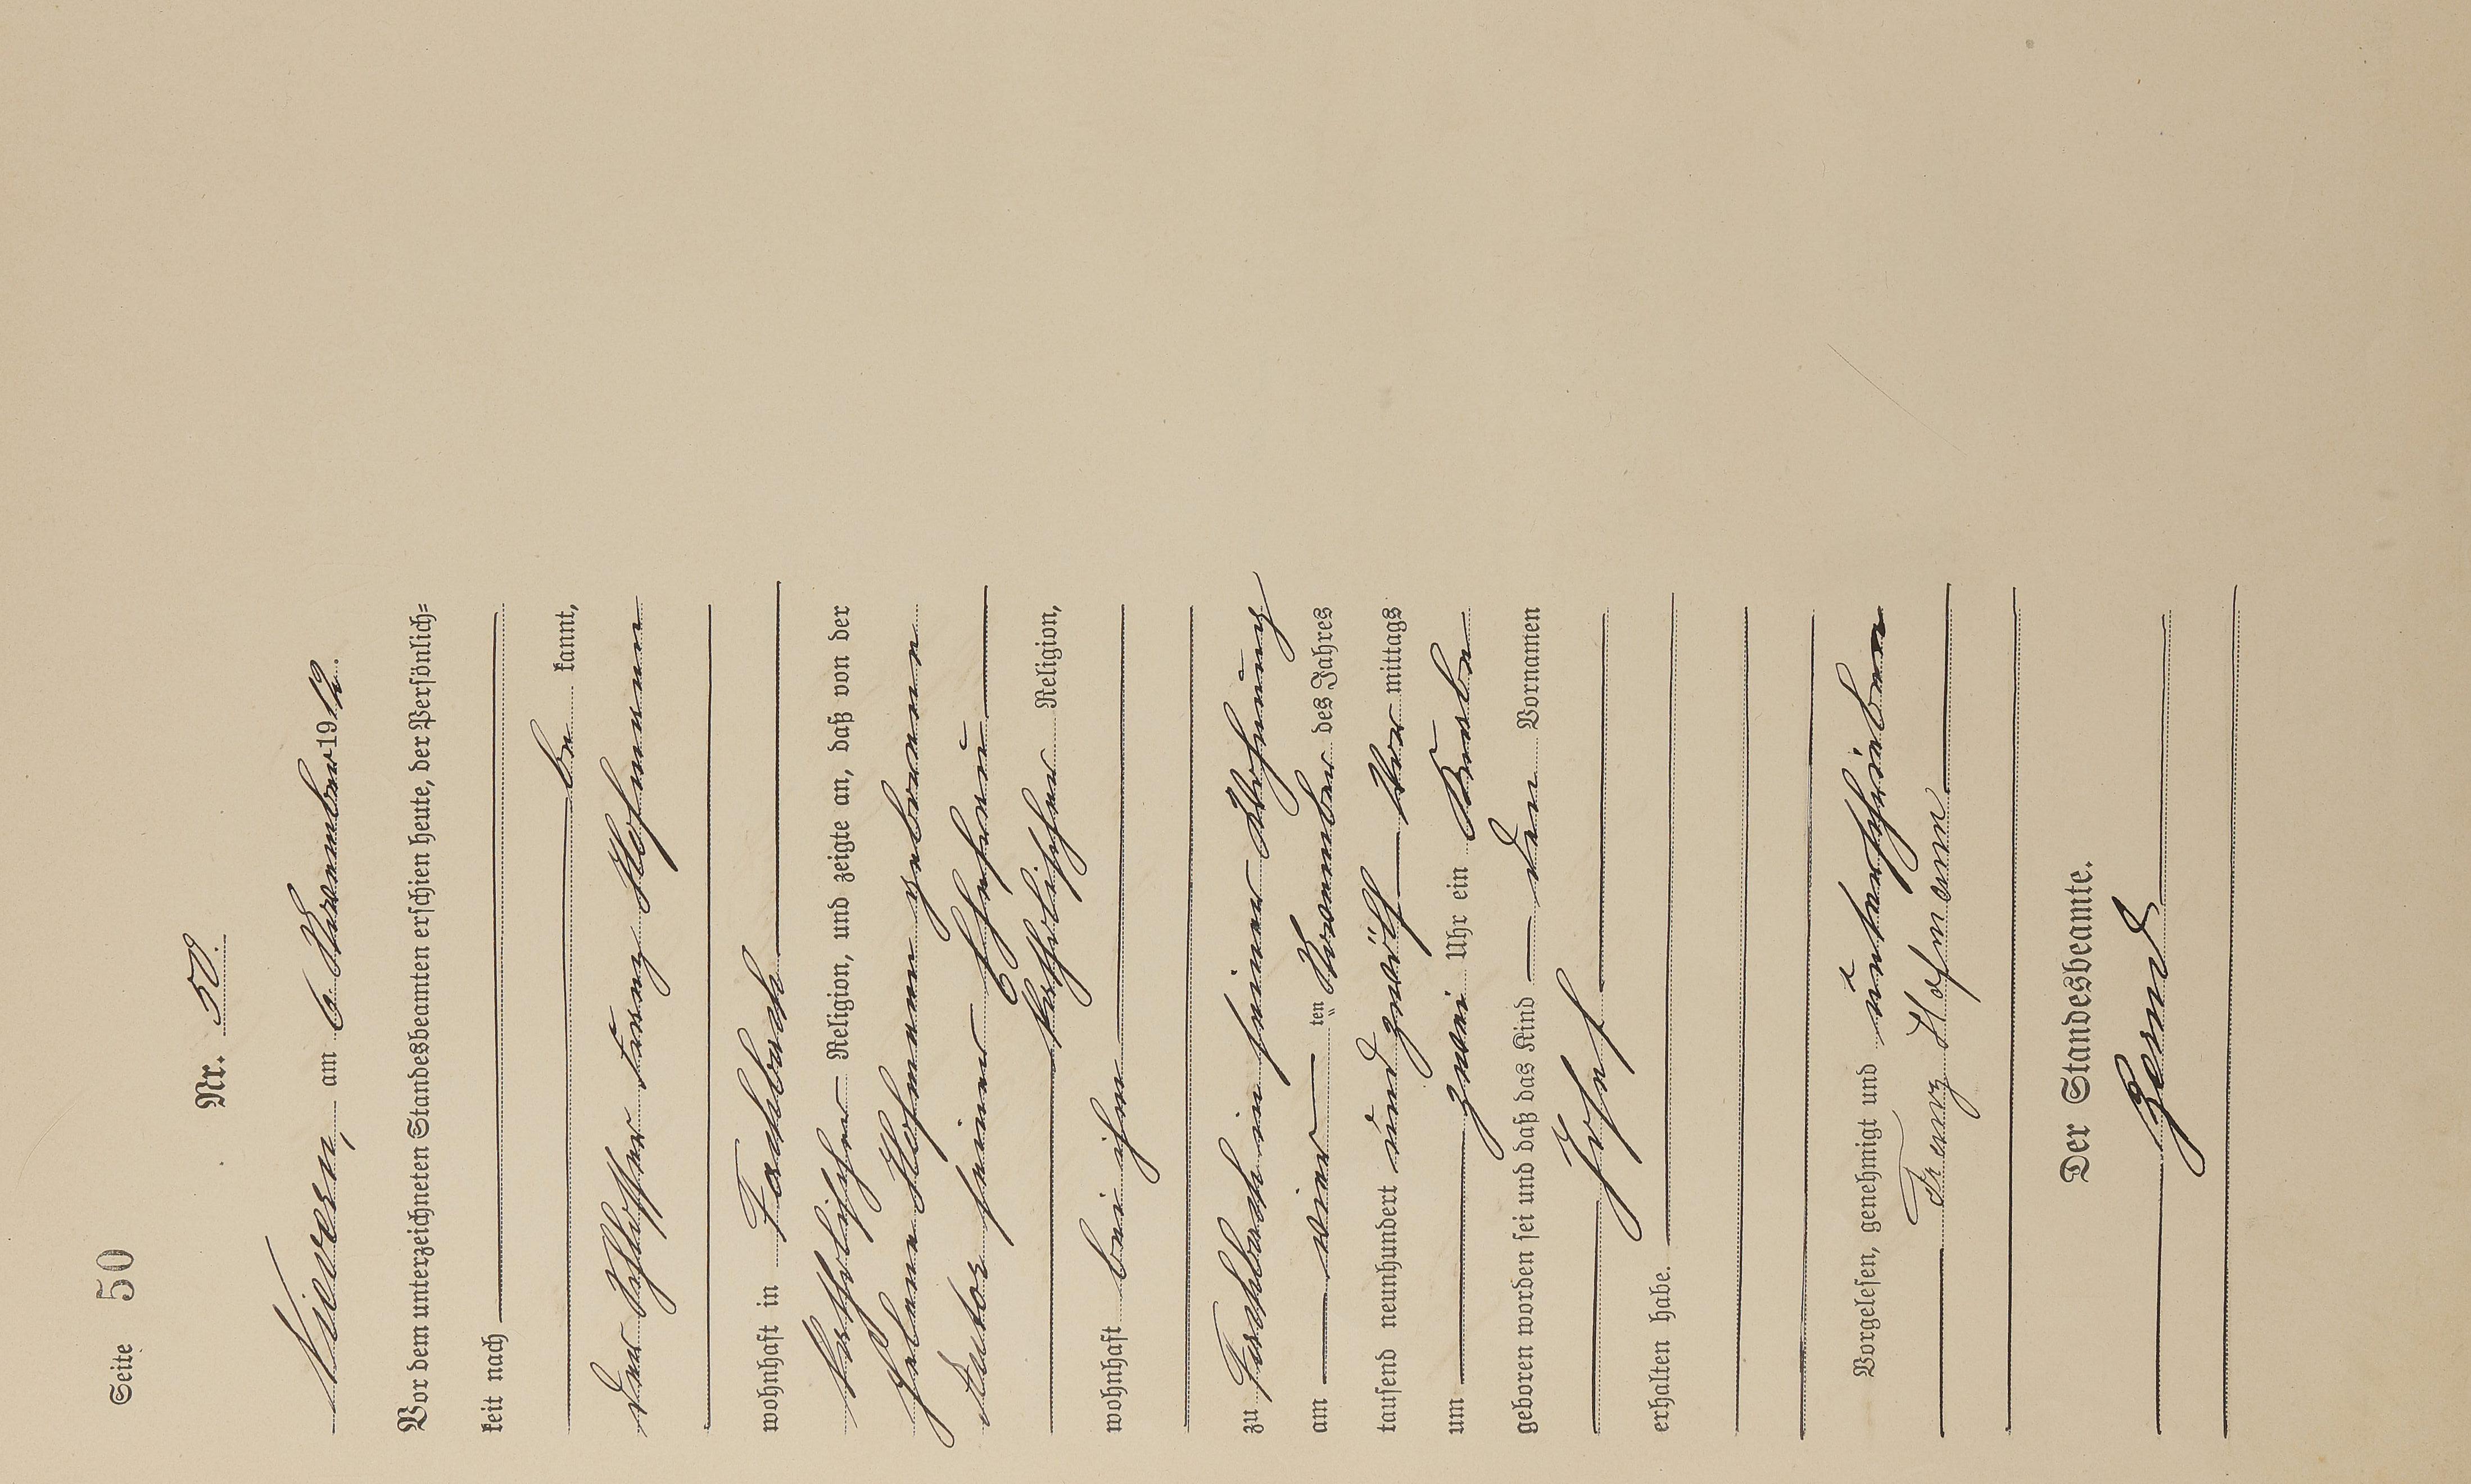 Seite 50
Nr. 50.
Nievern, am 6 November 1912.
Vor dem unterzeichneten Standesbeamten erschien heute, der Persönlich-
keit nach
be kannt,
der Schlosser Franz Hofmann
wohnhaft in Fachbach
katholischer Religion, und zeigte an, daß von der
Helene Hofmann geborenen
seiner Ehefrau
katholischer Religion,
wohnhaft bei ihm
zu Fachbach in seiner Wohnung
am vier ten November des Jahres
tausend neunhundert und zwölf Vor mittags
um zwei Uhr ein Knabe
geboren worden sei und daß das Kind den Vornamen
Josef
erhalten habe.
Vorgelesen, genehmigt und unterschrieben
Franz Hofmann
Der Standesbeamte.